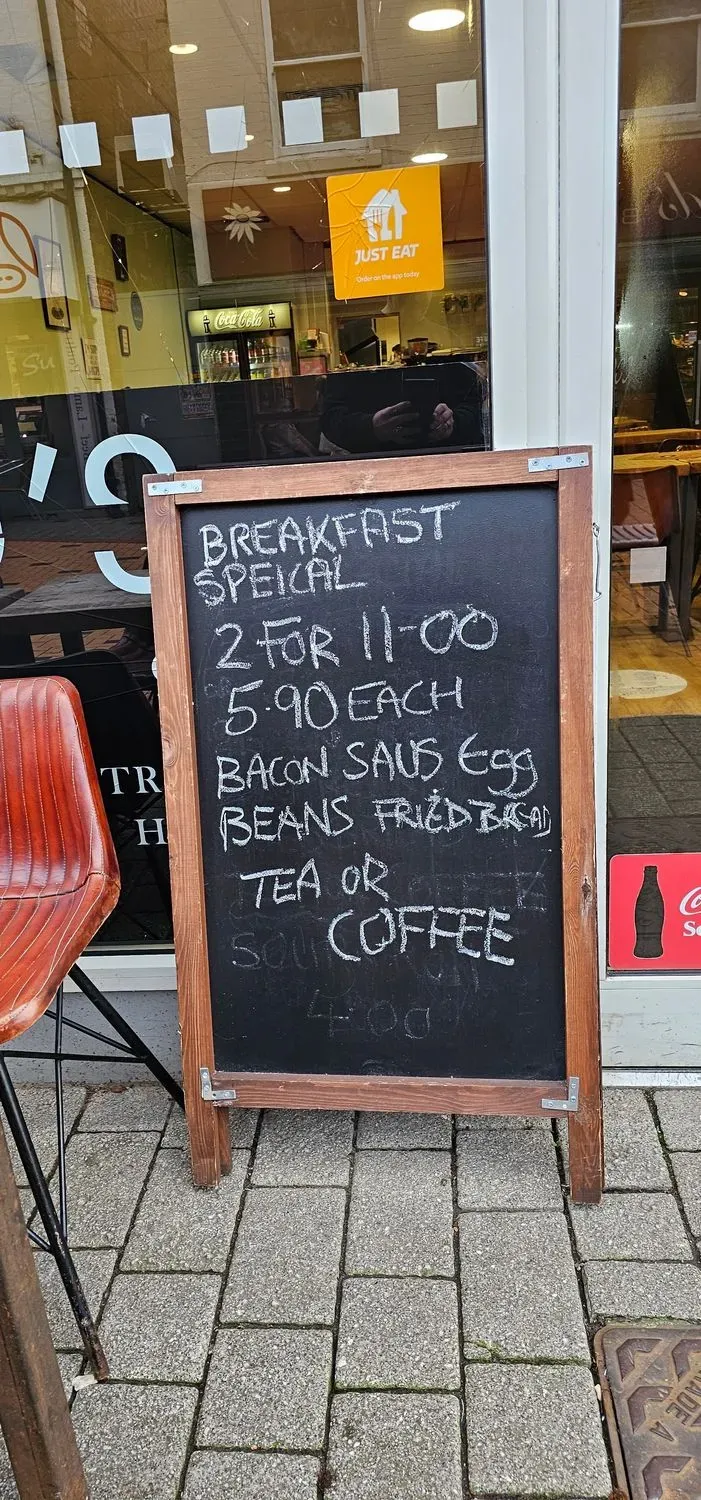 JUST EAT
Order on the app today
Coca-Cola
's
BREAKFAST
SPEICAL
2 FOR 11-00
5·90 EACH
BACON SAUS Egg
BEANS FRIED BREAD
TEA OR
COFFEE
SOU
4.00
TR
H
MADE